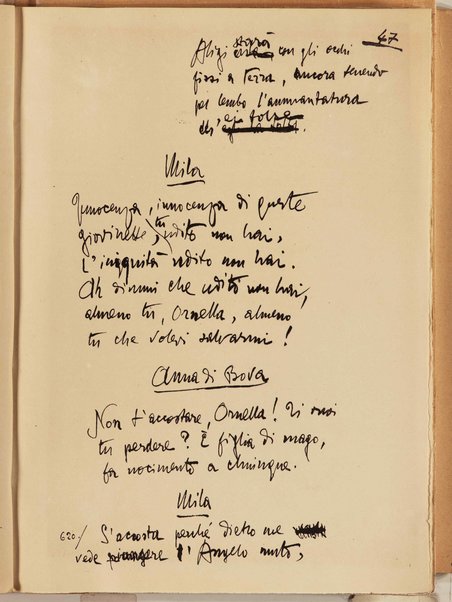 47
Aligi starà con gli occhi
fissi a terra, ancora tenendo
pel lembo l'ammantatura
ch'ei tolse.
Mila
Innocenza, innocenza di queste
giovinette, tu udito non hai,
l'iniquità udito non hai.
Ah dimmi che udito non hai,
almeno tu, Ornella, almeno
tu che volevi salvarmi!
Anna di Bova
Non t'accostare, Ornella! Ti vuoi
tu perdere? È figlia di mago,
fa nocimento a chiunque.
Mila
620/ S'accosta perché dietro me
vede piangere l'Angelo muto,